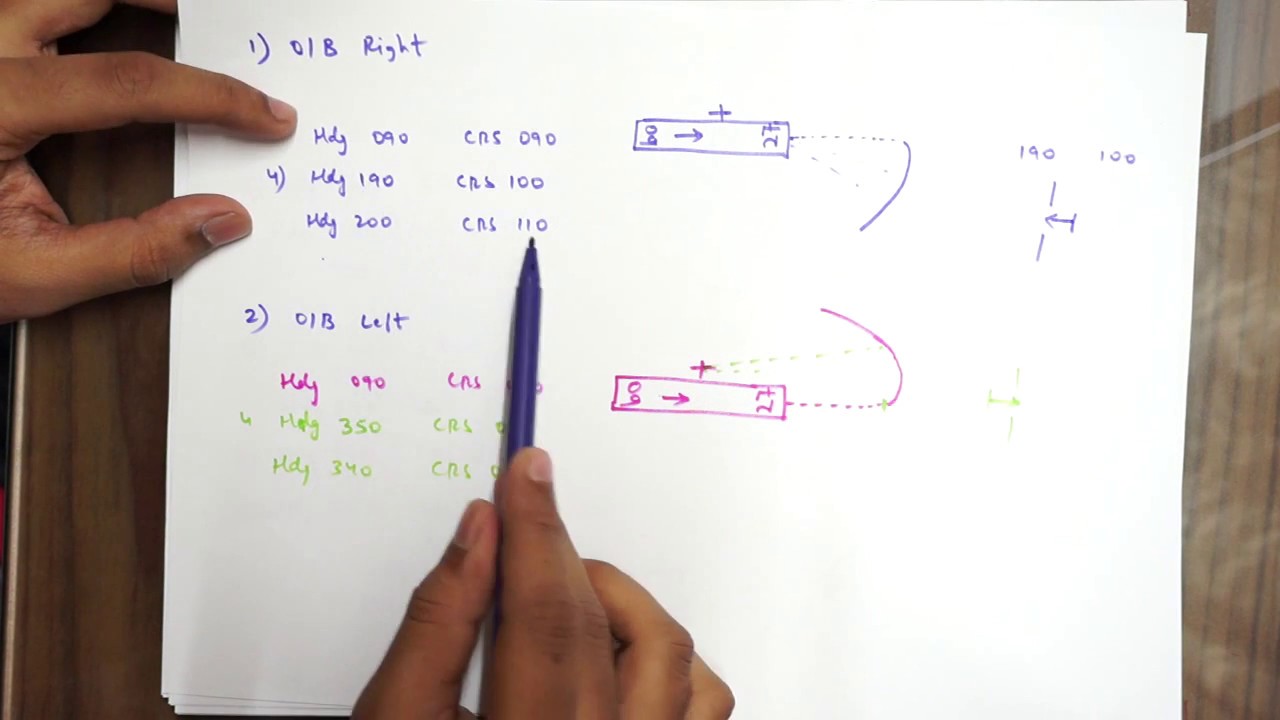 1) O/B Right
Hdg 090 CRS 090
4) Hdg 190 CRS 100
Hdg 200 CRS 110
09 27
190 100
2) O/B Left
Hdg 090 CRS
4 Hdg 350 CRS
Hdg 340 CRS
09 27